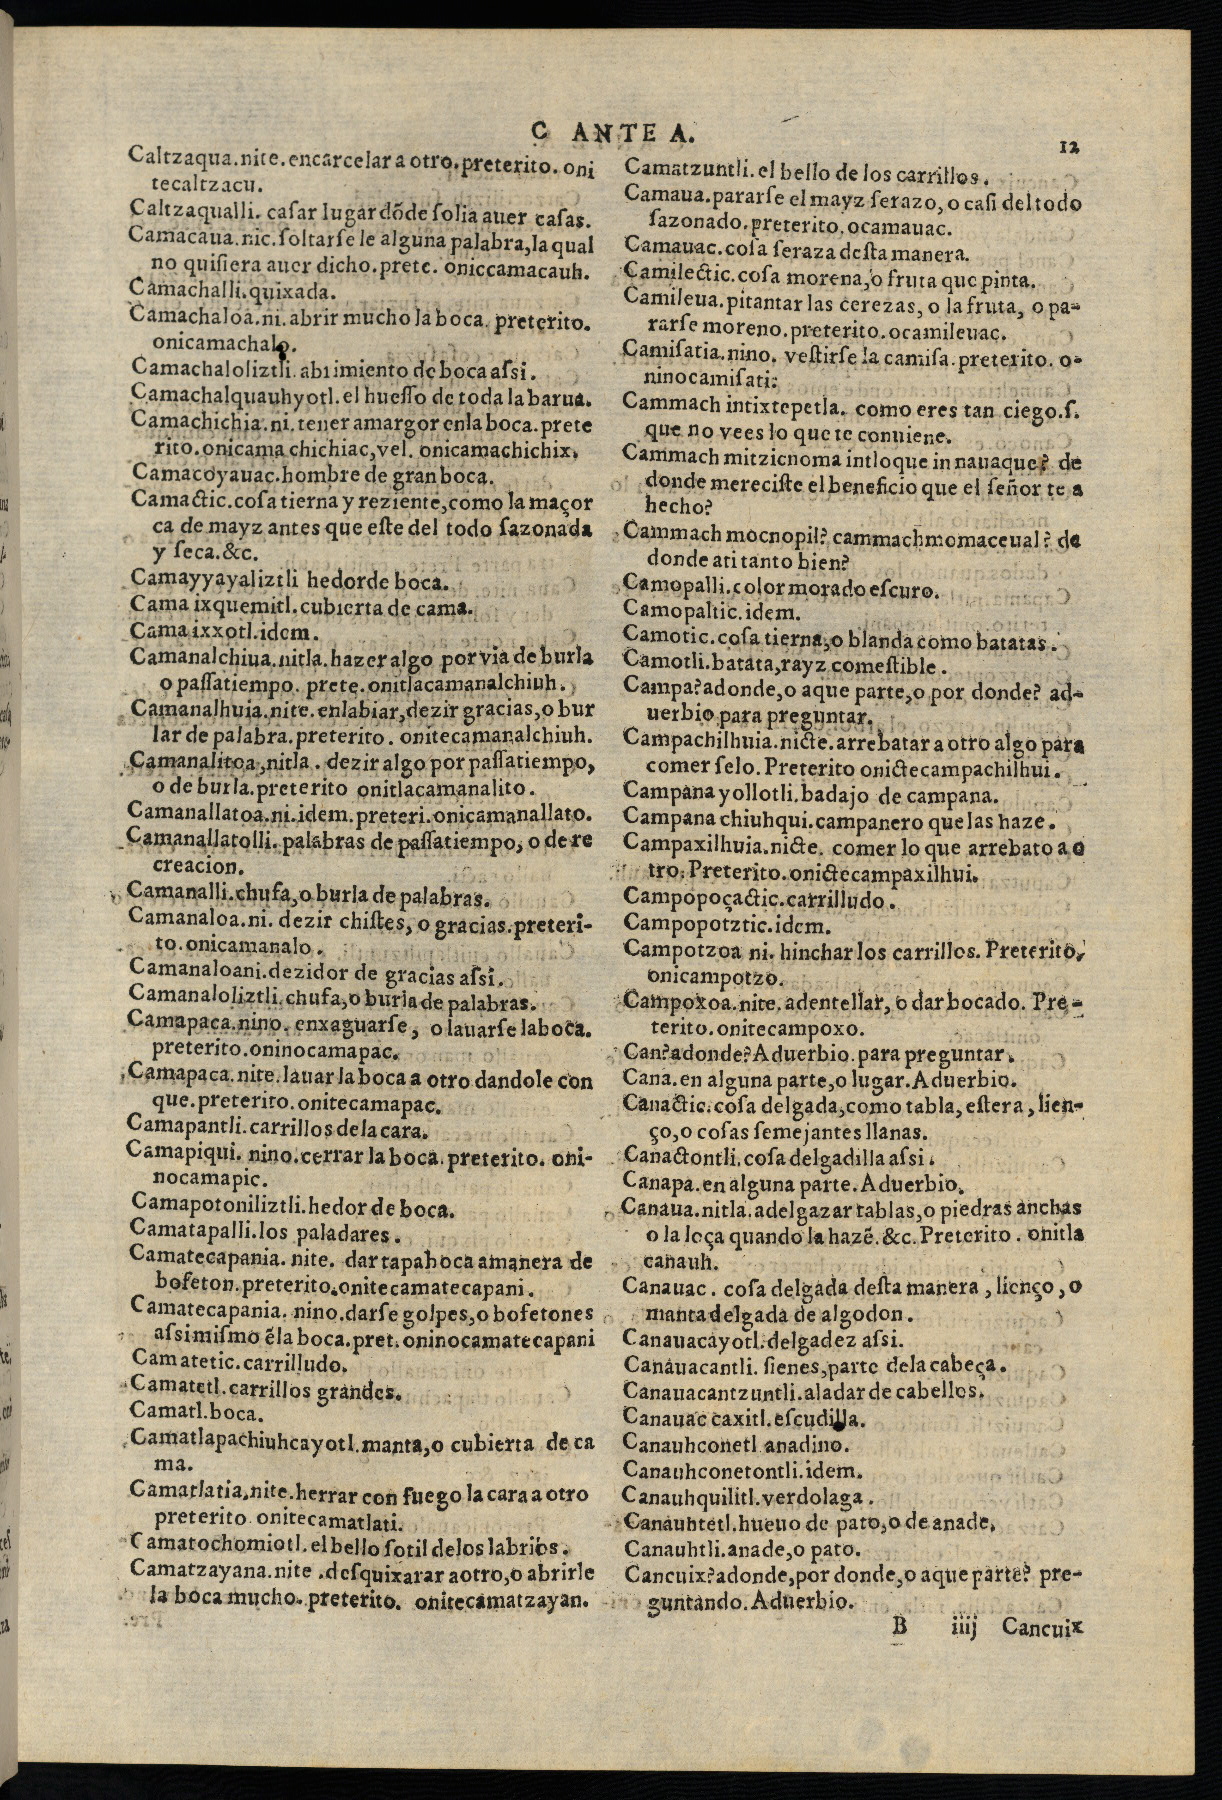 C ANTE A.
12
Caltzaqua.nite.encarcelar a otro.preterito.oni
tecaltzacu.
Caltzaqualli.casar lugar dõde solia auer casas.
Camacaua.nic.soltarse le alguna palabra,la qual
no quisiera auer dicho.prete.oniccamacauh.
Camachalli.quixada.
Camachaloa.ni.abrir mucho la boca.preterito.
onicamachalo.
Camachaloliztli.abrimiento de boca assi.
Camachalquauhyotl.el huesso de toda la barua.
Camachichia.ni.tener amargor enla boca.prete
rito.onicama chichiac,vel.onicamachichix.
Camacoyauac.hombre de gran boca.
Camactic.cosa tierna y reziente,como la maçor
ca de mayz antes que este del todo sazonada
y seca.&c.
Camayyayaliztli hedorde boca.
Cama ixquemitl.cubierta de cama.
Cama ixxotl.idem.
Camanalchiua.nitla.hazer algo por via de burla
o passatiempo.prete.onitlacamanalchiuh.
Camanalhuia.nite.enlabiar,dezir gracias,o bur
lar de palabra.preterito.onitecamanalchiuh.
Camanalitoa,nitla.dezir algo por passatiempo,
o de burla.preterito onitlacamanalito.
Camanallatoa.ni.idem.preteri.onicamanallato.
Camanallatolli.palabras de passatiempo,o de re
creacion.
Camanalli.chufa,o burla de palabras.
Camanaloa.ni.dezir chistes,o gracias.preteri-
to.onicamanalo.
Camanaloani.dezidor de gracias assi.
Camanaloliztli.chufa,o burla de palabras.
Camapaca.nino.enxaguarse, o lauarse la boca.
preterito.oninocamapac.
Camapaca.nite.lauar la boca a otro dandole con
que.preterito.onitecamapac.
Camapantli.carrillos dela cara.
Camapiqui.nino.cerrar la boca.preterito.oni-
nocamapic.
Camapotoniliztli.hedor de boca.
Camatapalli.los paladares.
Camatecapania.nite.dar tapaboca a manera de
bofeton.preterito.onitecamatecapani.
Camatecapania.nino.darse golpes,o bofetones
assimismo ẽla boca.pret.oninocamatecapani
Camatetic.carrilludo.
Camatetl.carrillos grandes.
Camatl.boca.
Camatlapachiuhcayotl.manta,o cubierta de ca
ma.
Camatlatia.nite.herrar con fuego la cara a otro
preterito onitecamatlati.
Camatochomiotl.el bello sotil delos labrios.
Camatzayana.nite.desquixarar aotro,o abrirle
la boca mucho.preterito.onitecamatzayan.
Camatzuntli.el bello de los carrillos.
Camaua.pararse el mayz serazo,o casi del todo
sazonado.preterito.ocamauac.
Camauac.cosa seraza desta manera.
Camilectic.cosa morena,o fruta que pinta.
Camileua.pitantar las cerezas, o la fruta, o pa-
rarse moreno.preterito.ocamileuac.
Camisatia.nino.vestirse la camisa.preterito.o-
ninocamisati:
Cammach intixtepetla.como eres tan ciego.s.
que no vees lo que te conuiene.
Cammach mitzicnoma intloque in nauaque? de
donde mereciste el beneficio que el señor te a
hecho?
Cammach mocnopil? cammachmomaceual? de
donde ati tanto bien?
Camopalli.color morado escuro.
Camopaltic.idem.
Camotic.cosa tierna,o blanda como batatas.
Camotli.batata,rayz comestible.
Campa?adonde,o aque parte,o por donde? ad-
uerbio para preguntar.
Campachilhuia.nicte.arrebatar a otro algo para
comer selo.Preterito onictecampachilhui.
Campana yollotli.badajo de campana.
Campana chiuhqui.campanero que las haze.
Campaxilhuia.nicte.comer lo que arrebato a o
tro.Preterito.onictecampaxilhui.
Campopoçactic.carrilludo.
Campopotztic.idem.
Campotzoa ni.hinchar los carrillos.Preterito,
onicampotzo.
Campoxoa.nite.adentellar,o dar bocado. Pre-
terito.onitecampoxo.
Can?adonde?Aduerbio.para preguntar.
Cana.en alguna parte,o lugar.Aduerbio.
Canactic.cosa delgada,como tabla,estera,lien-
ço,o cosas semejantes llanas.
Canactontli.cosa delgadilla assi.
Canapa.en alguna parte.Aduerbio.
Canaua.nitla.adelgazar tablas,o piedras anchas
o la loça quando la hazẽ.&c.Preterito.onitla
canauh.
Canauac.cosa delgada desta manera,lienço,o
manta delgada de algodon.
Canauacayotl.delgadez assi.
Canauacantli.sienes,parte dela cabeça.
Canauacantzuntli.aladar de cabellos.
Canauac caxitl.escudilla.
Canauhconetl anadino.
Canauhconetontli.idem.
Canauhquilitl.verdolaga.
Canauhtetl.hueuo de pato,o de anade.
Canauhtli.anade,o pato.
Cancuix?adonde,por donde,o aque parte? pre-
guntando.Aduerbio.
B iiij Cancuix